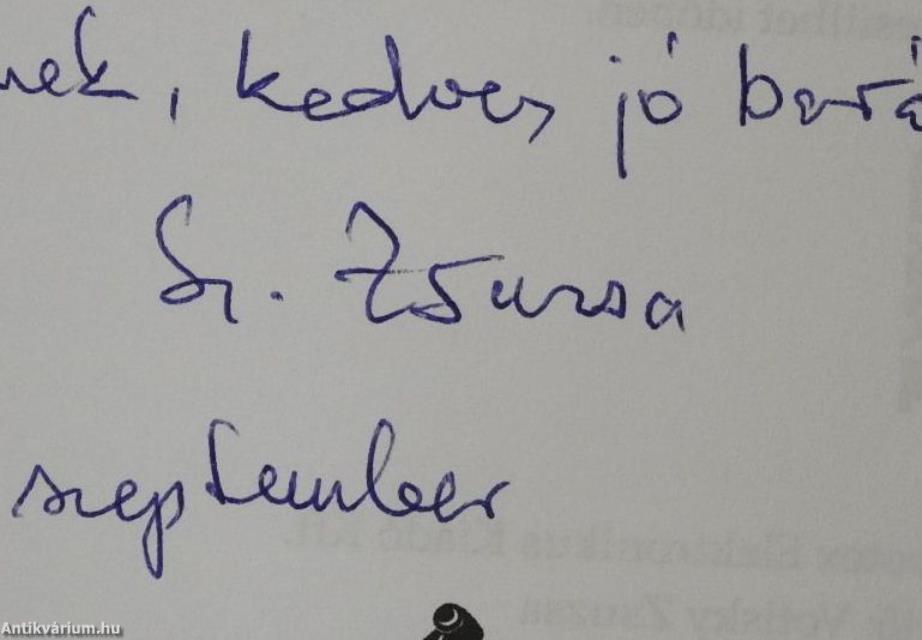 nek, kedves jó bará
Sz. Zsuzsa
szeptember
Antikvárium.hu